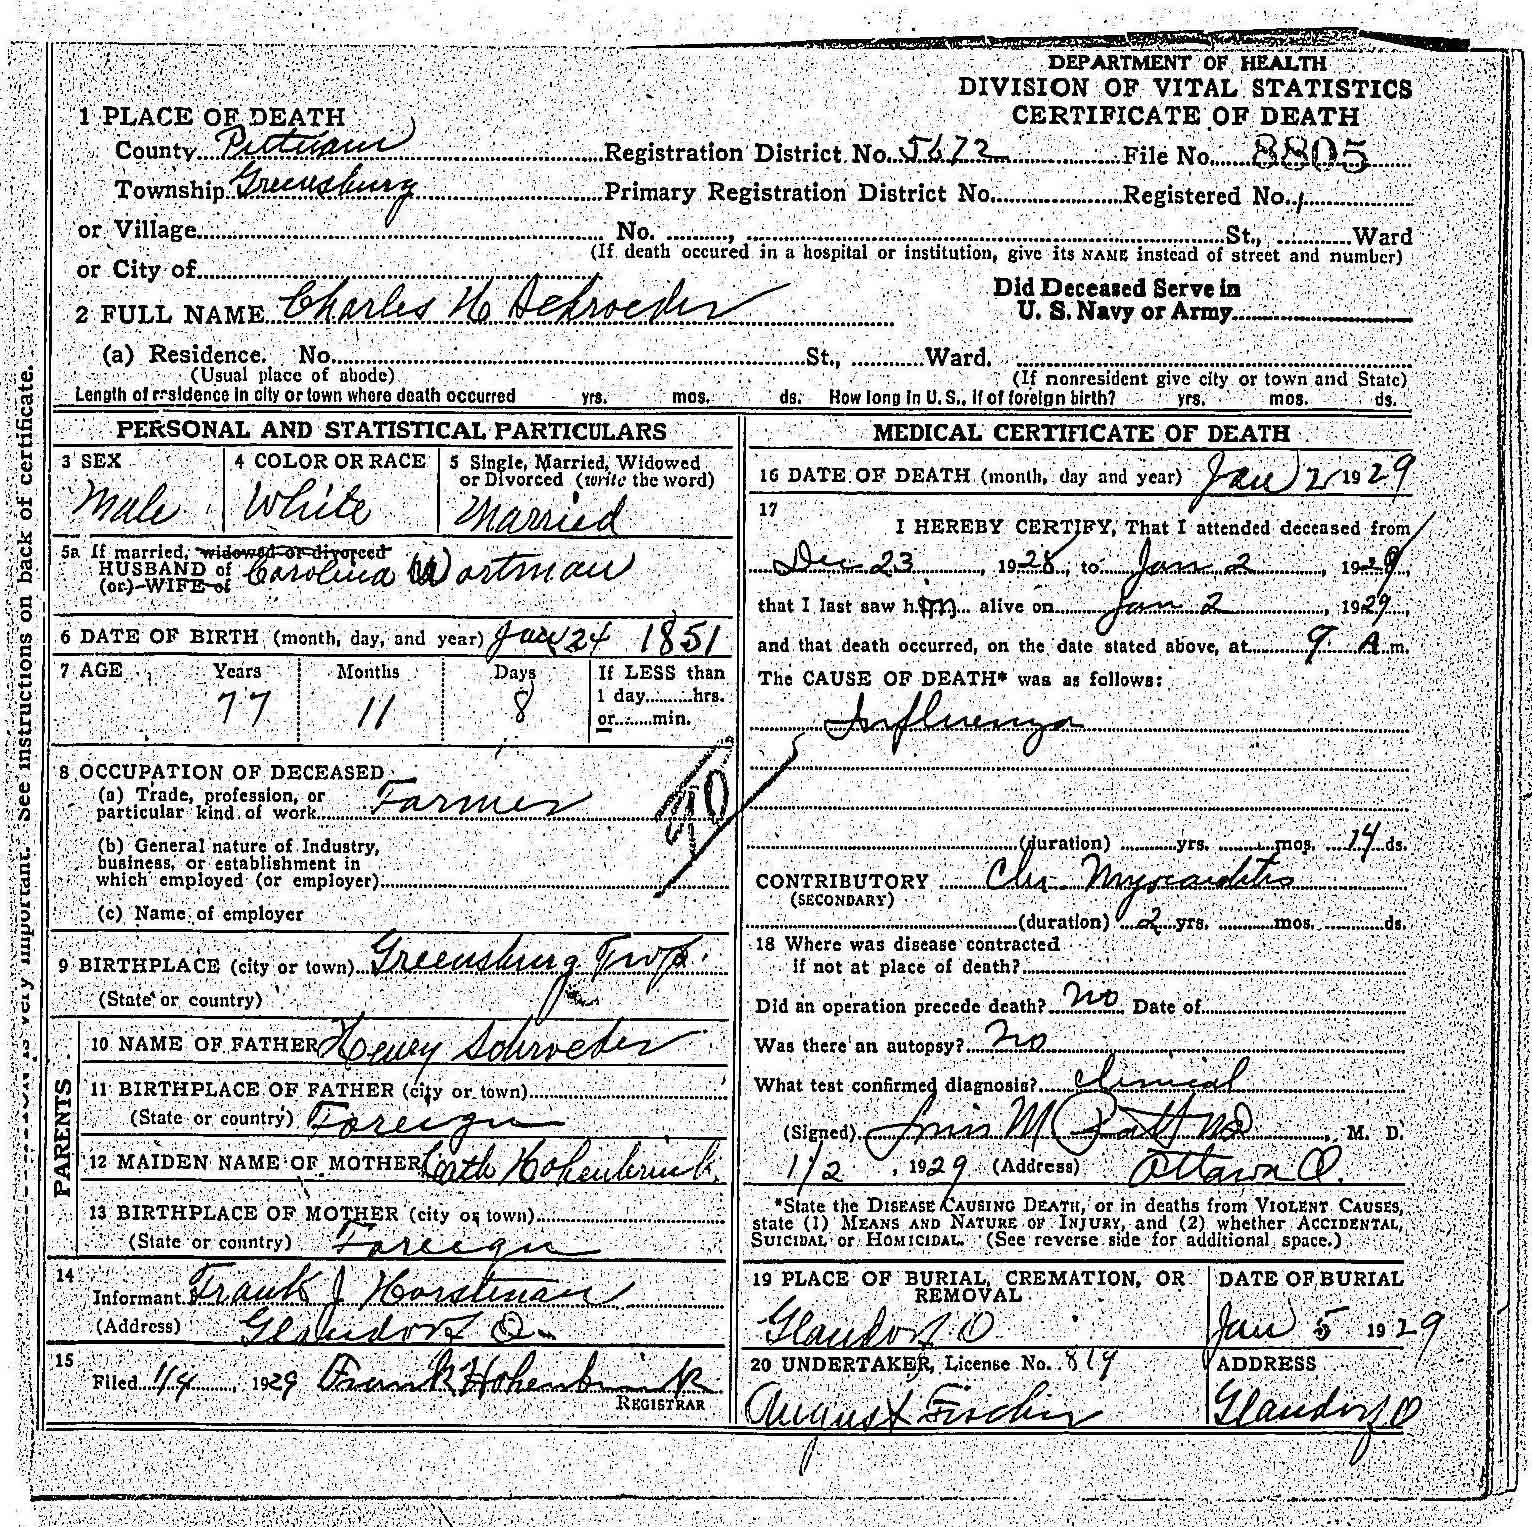 DEPARTMENT OF HEALTH
DIVISION OF VITAL STATISTICS
CERTIFICATE OF DEATH
1 PLACE OF DEATH
County Putnam Registration District No. 5672 File No. 8805
Township Greensburg Primary Registration District No. Registered No. 1
or Village No. , St., Ward
(If death occured in a hospital or institution, give its NAME instead of street and number)
or City of
Did Deceased Serve in
U. S. Navy or Army
2 FULL NAME Charles H Schroeder
(a) Residence. No. St., Ward.
(Usual place of abode) (If nonresident give city or town and State)
Length of residence in city or town where death occurred yrs. mos. ds. How long in U. S., if of foreign birth? yrs. mos. ds.
See instructions on back of certificate.
very important.
PERSONAL AND STATISTICAL PARTICULARS
3 SEX
Male
4 COLOR OR RACE
White
5 Single, Married, Widowed
or Divorced (write the word)
Married
5a If married, widowed or divorced
HUSBAND of
(or) WIFE of
Carolina Wortman
6 DATE OF BIRTH (month, day, and year) Jan 24 1851
7 AGE Years Months Days If LESS than
77 11 8 1 day hrs.
or min.
8 OCCUPATION OF DECEASED
(a) Trade, profession, or
particular kind of work Farmer
(b) General nature of Industry,
business, or establishment in
which employed (or employer)
(c) Name of employer
9 BIRTHPLACE (city or town) Greensburg Twp.
(State or country)
PARENTS
10 NAME OF FATHER Henry Schroeder
11 BIRTHPLACE OF FATHER (city or town)
(State or country) Foreign
12 MAIDEN NAME OF MOTHER Cath Hohenbrink
13 BIRTHPLACE OF MOTHER (city or town)
(State or country) Foreign
14
Informant Frank J Horstman
(Address) Glandorf O
15
Filed 1/4, 1929 Frank Hohenbrink
REGISTRAR
MEDICAL CERTIFICATE OF DEATH
16 DATE OF DEATH (month, day and year) Jan 2 1929
17
I HEREBY CERTIFY, That I attended deceased from
Dec 23, 1928, to Jan 2, 1929,
that I last saw him alive on Jan 2, 1929,
and that death occurred, on the date stated above, at 9 A m.
The CAUSE OF DEATH* was as follows:
Influenza
(duration) yrs. mos. 14 ds.
CONTRIBUTORY Chr. Myocarditis
(SECONDARY)
(duration) 2 yrs. mos. ds.
18 Where was disease contracted
if not at place of death?
Did an operation precede death? No Date of
Was there an autopsy? No
What test confirmed diagnosis? Clinical
(Signed) M M. D.
1/2, 1929 (Address) Ottawa O.
*State the DISEASE CAUSING DEATH, or in deaths from VIOLENT CAUSES,
state (1) MEANS AND NATURE OF INJURY, and (2) whether ACCIDENTAL,
SUICIDAL or HOMICIDAL. (See reverse side for additional space.)
19 PLACE OF BURIAL, CREMATION, OR
REMOVAL
Glandorf O
DATE OF BURIAL
Jan 5 1929
20 UNDERTAKER, License No. 819
August Fischer
ADDRESS
Glandorf O